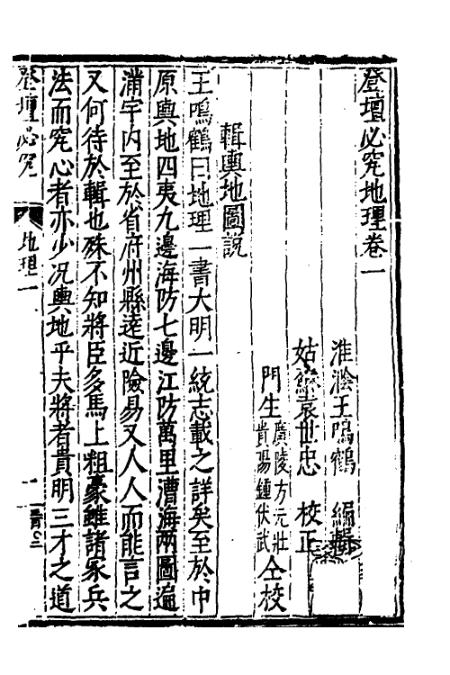 登壇必究地理卷一
淮隂王鳴鶴 編輯
袁世忠 校正
門生廣陵方元壯
貴陽鍾伏武
仝校
輯輿地圖説
王鳴鶴曰地理一書大明一統志載之詳矣至於中
原輿地四夷九邊海防七邊江防萬里漕海兩圖遍
滿宇内至於省府州縣逺近險易又人人而能言之
又何待於輯也殊不知將臣多馬上粗豪雖諸家兵
法而究心者亦少况輿地乎夫將者貴明三才之道
登壇必究
地理一
一